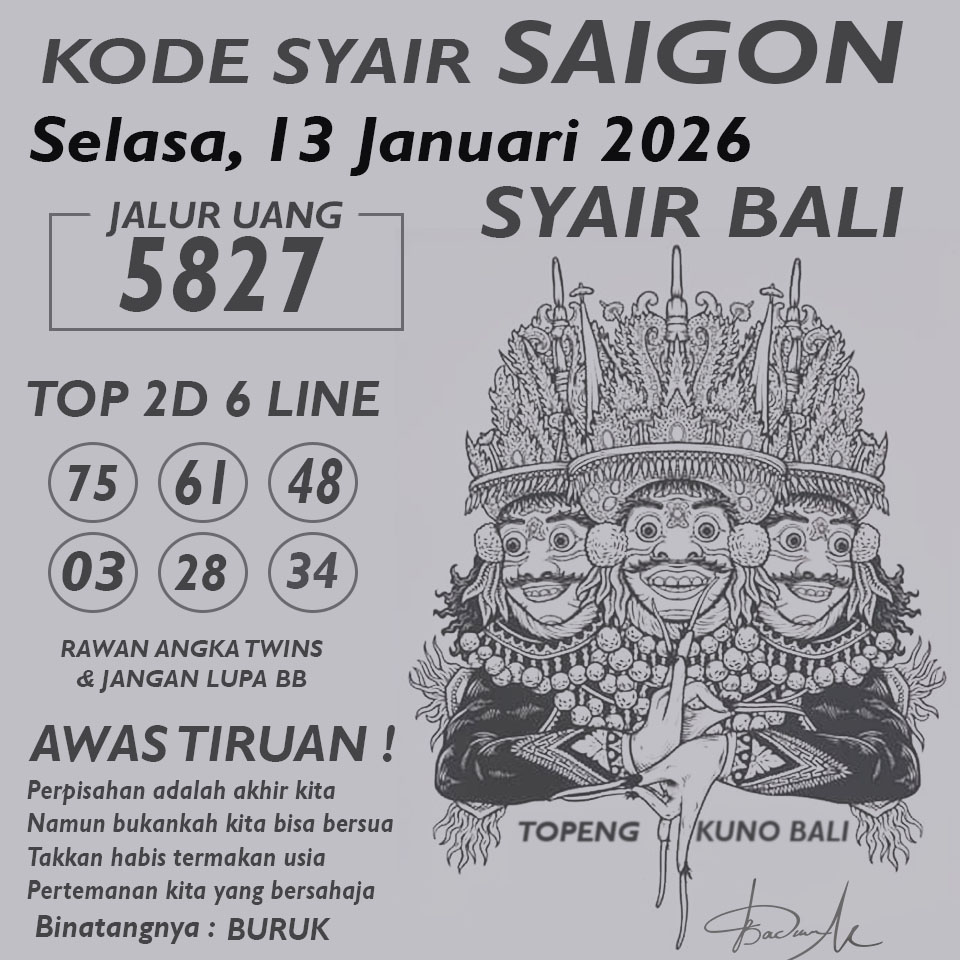 KODE SYAIR SAIGON
Selasa, 13 Januari 2026
SYAIR BALI
JALUR UANG
5827
TOP 2D 6 LINE
75 61 48
03 28 34
RAWAN ANGKA TWINS
& JANGAN LUPA BB
AWAS TIRUAN !
Perpisahan adalah akhir kita
Namun bukankah kita bisa bersua
Takkan habis termakan usia
Pertemanan kita yang bersahaja
Binatangnya : BURUK
TOPENG KUNO BALI